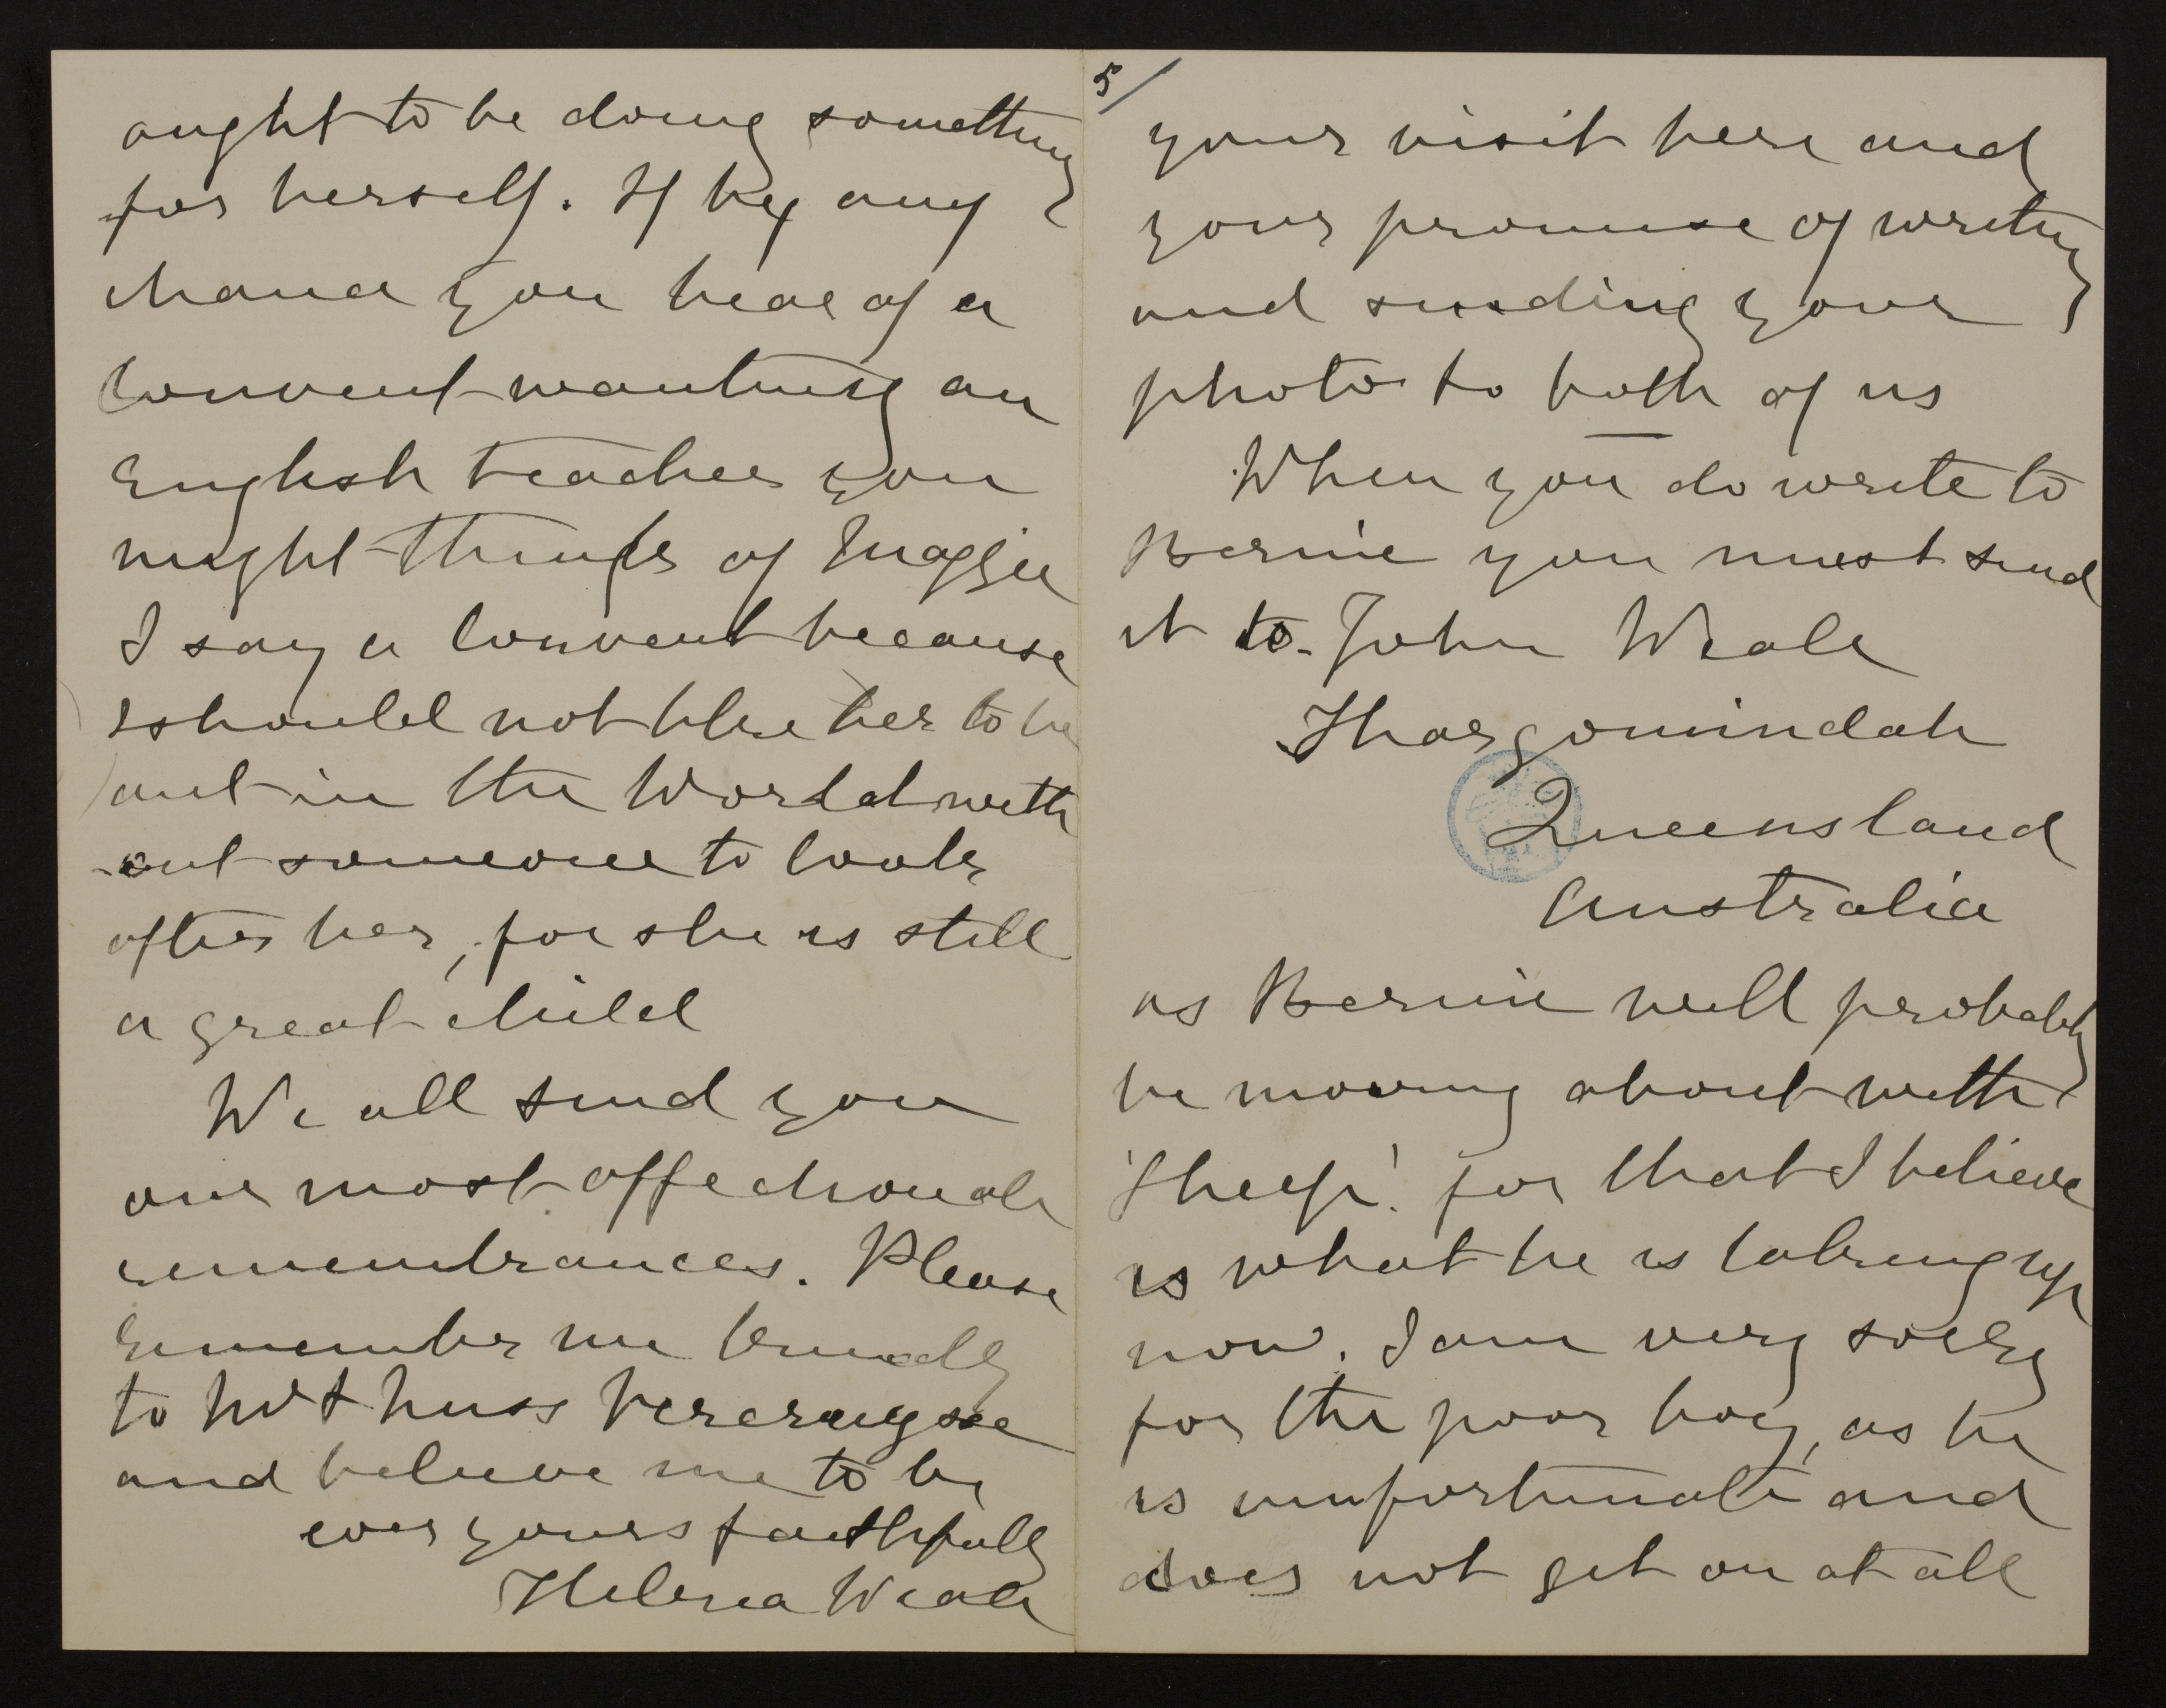 ought to be doing something
for herself. If by any
chance you hear of a
Convent wanting an
English teacher you
might think of Maggie
I say a Convent because
I should not like her to be
out in the World with
-out someone to look
after her, for she is still
a great child
We all send you
our most affectionate
remembrances. Please
remember me kindly
to Mr & Miss
and believe me to be
ever yours faithfully
Helena Weale
5/
your visit here and
your promise of writing
and sending your
photo to both of us
When you do write to
Bernie you must send
it to John Weale
Thargomindah
Queensland
Australia
as Bernie will probably
be moving about with
'Sheep'. for that I believe
is what he is taking up
now. I am very sorry
for the poor boy, as he
is unfortunate and
does not get on at all